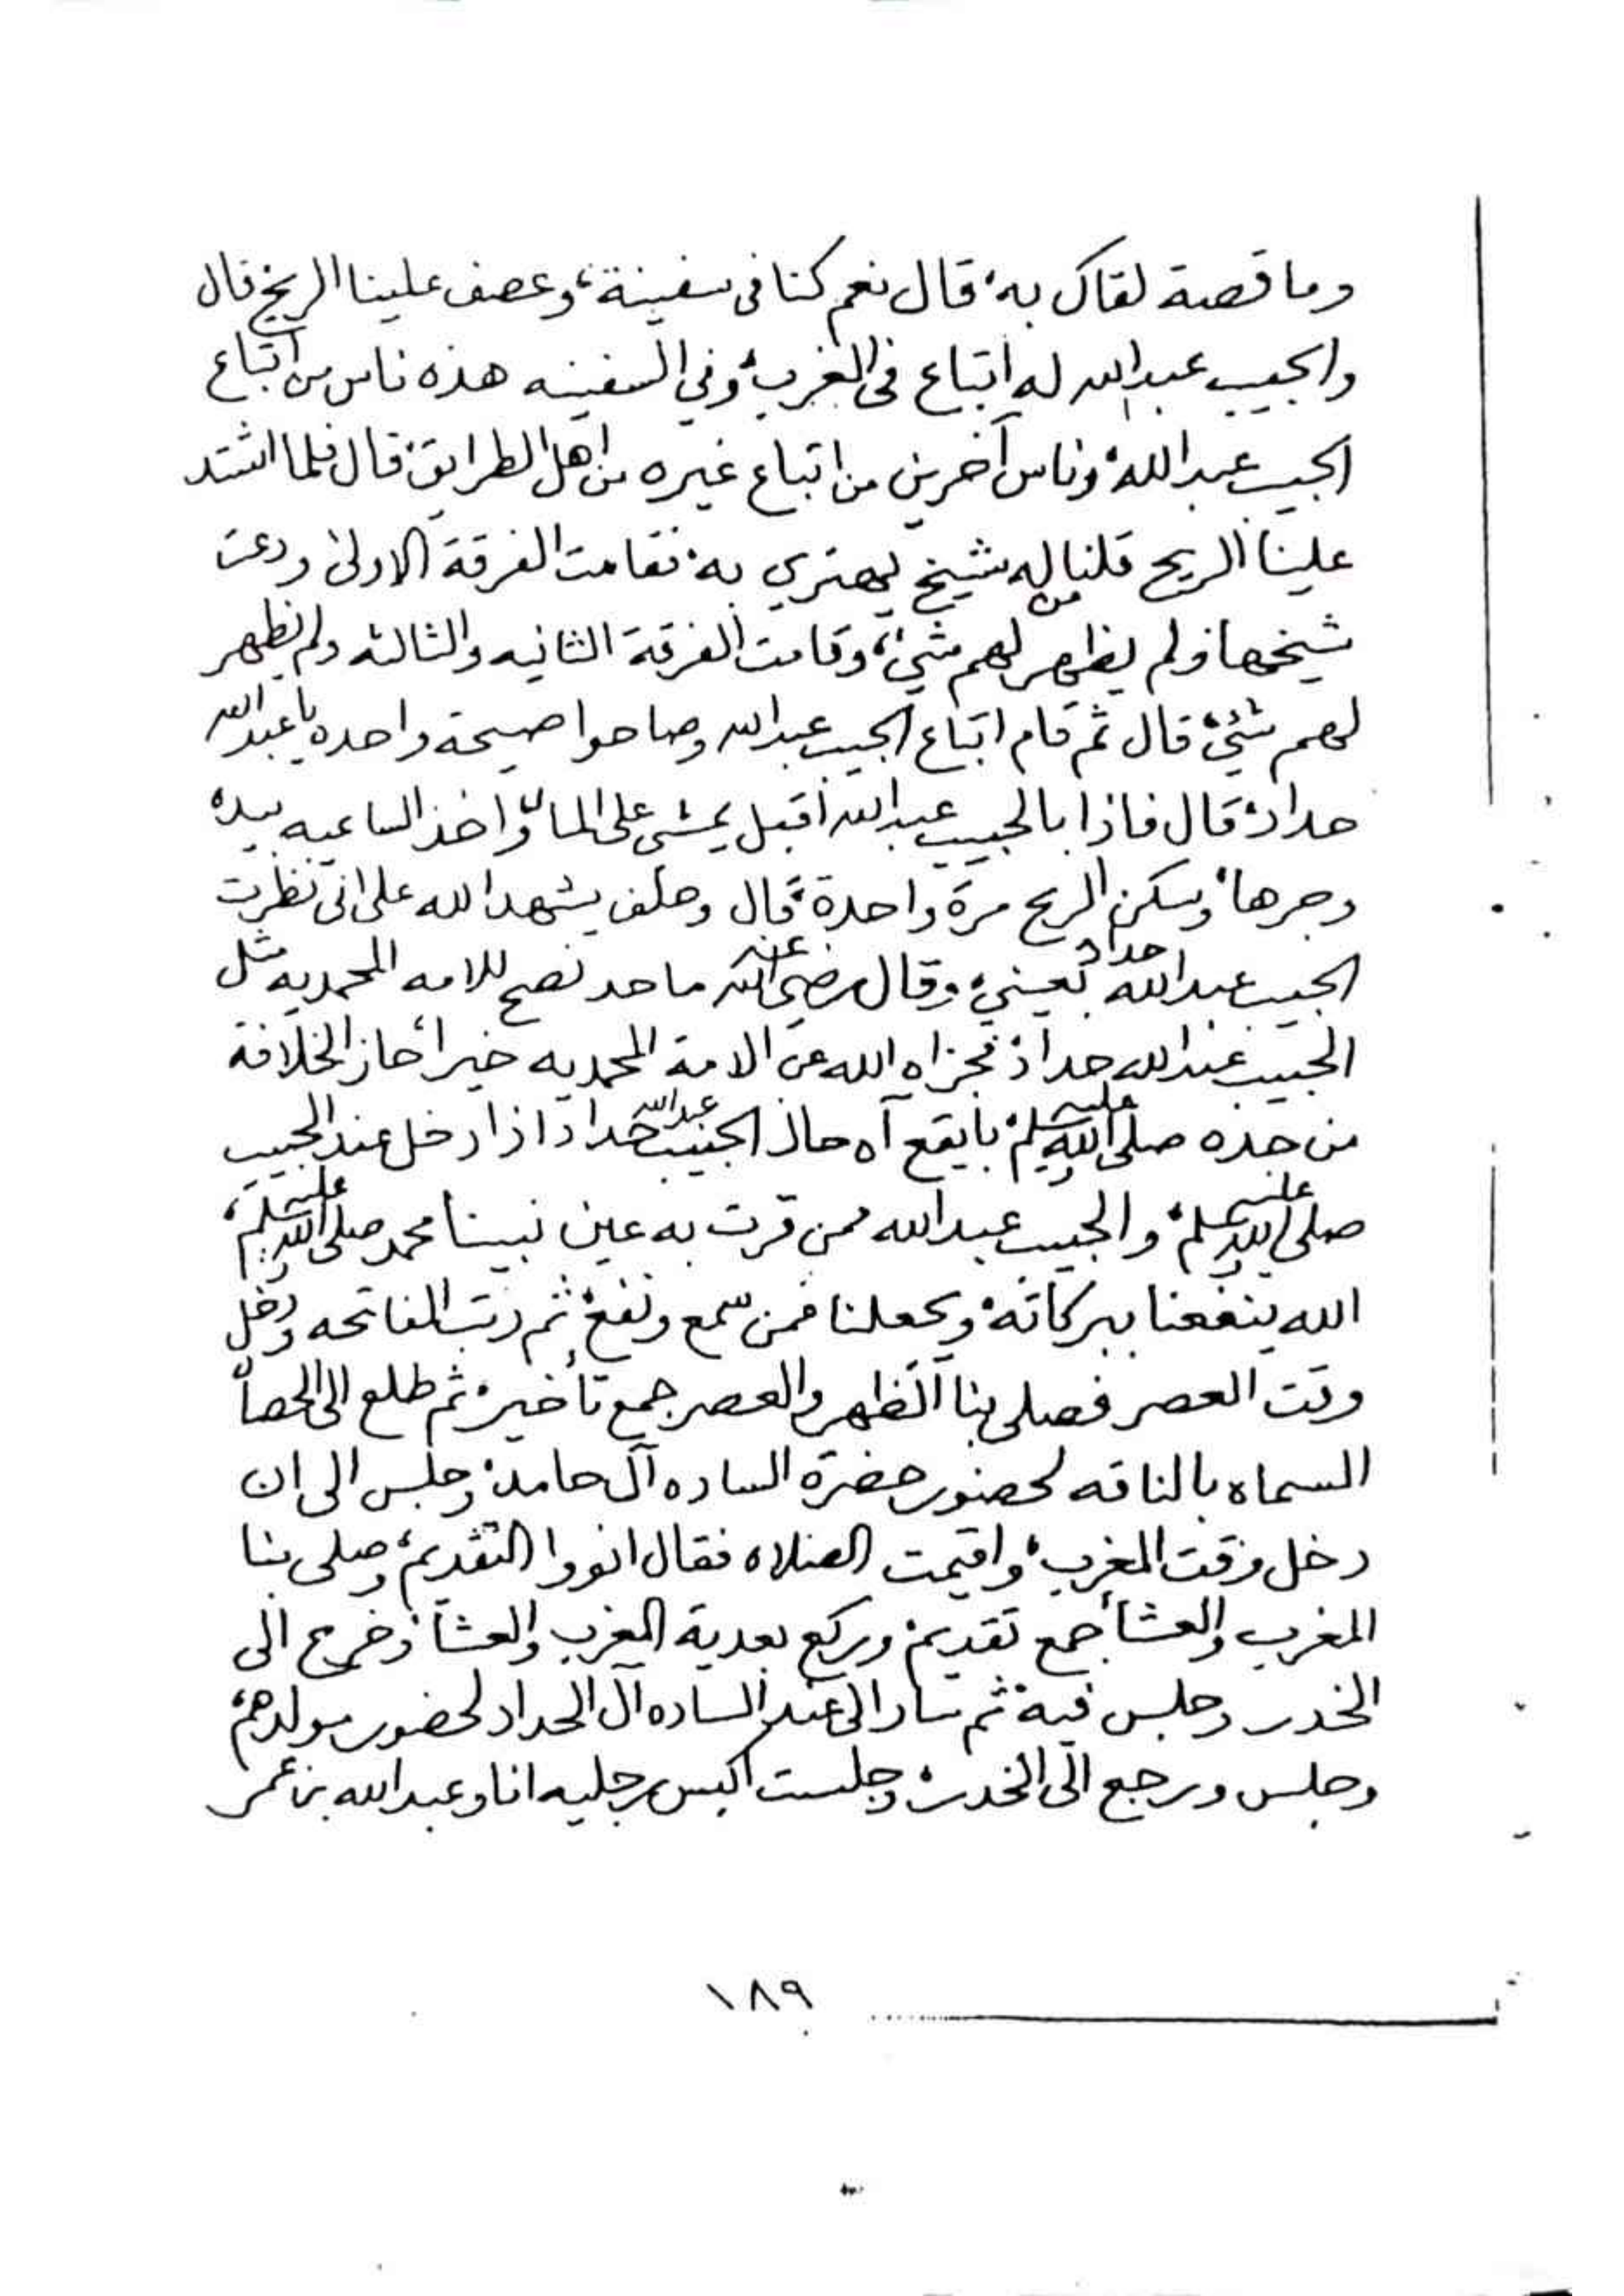 وما قصة لقاك به، قال نعم كنا فى سفينة، وعصف علينا الريح قال
والحبيب عبدالله له اتباع فى الغرب، وفي السفينه هذه ناس من اتباع
الحبيب عبدالله، وناس آخرين من اتباع غيره من اهل الطرايق، قال فلما اشتد
علينا الريح قلنا من له شيخ يهتري به، فقامت الفرقة الاولى ودعت
شيخها ولم يظهر لهم شيء، وقامت الفرقة الثانيه والثالثه ولم يظهر
لهم شيء، قال ثم قام اتباع الحبيب عبدالله وصاحوا صيحة واحده يا عبدالله
حداد، قال فاذا بالحبيب عبدالله اقبل يمشى على الماء، واخذ الساعيه بيده
وجرها، وسكن الريح مرة واحدة، قال وحلف يشهد الله على انى نظرت
الحبيب عبدالله حداد بعيني، وقال رضي الله عنه ما حد نصح للامه المحمديه مثل
الحبيب عبدالله حداد، فجزاه الله عن الامة المحمديه خيراً، حاز الخلافة
من جده صلى الله عليه وسلم، بايقع آه حال الحبيب عبدالله حداد اذا دخل عند الحبيب
صلى الله عليه وسلم، والحبيب عبدالله ممن قرت به عين نبينا محمد صلى الله عليه وسلم،
الله ينفعنا ببركاته، ويجعلنا ممن سمع ونفع، ثم رتب الفاتحه ودخل
وقت العصر فصلى بنا الظهر والعصر جمع تأخير، ثم طلع الى الحصاة
المسماه بالناقه لحضور حضرة الساده آل حامد، وجلس الى ان
دخل وقت المغرب، واقيمت الصلاه فقال انووا التقديم، وصلى بنا
المغرب والعشاء جمع تقديم، وركع بعدية المغرب والعشاء، وخرج الى
الخدر وجلس فيه، ثم سار الى عند الساده آل الحداد لحضور مولدهم،
وجلس ورجع الى الخدر، وجلست اكبس رجليه انا وعبدالله بن عمر
١٨٩